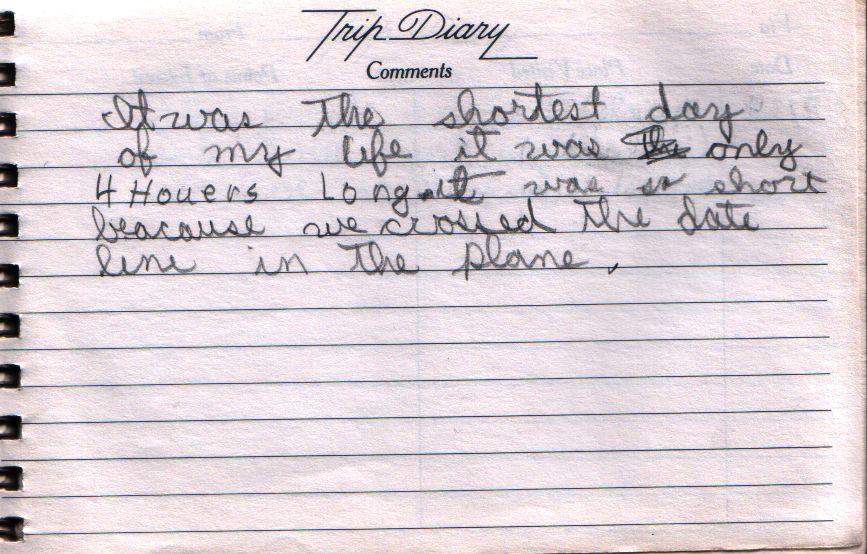 Trip Diary
Comments
It was the shortest day
of my life it was only
4 Houers Long it was so short
beacause we crossed the date
line in the plane.